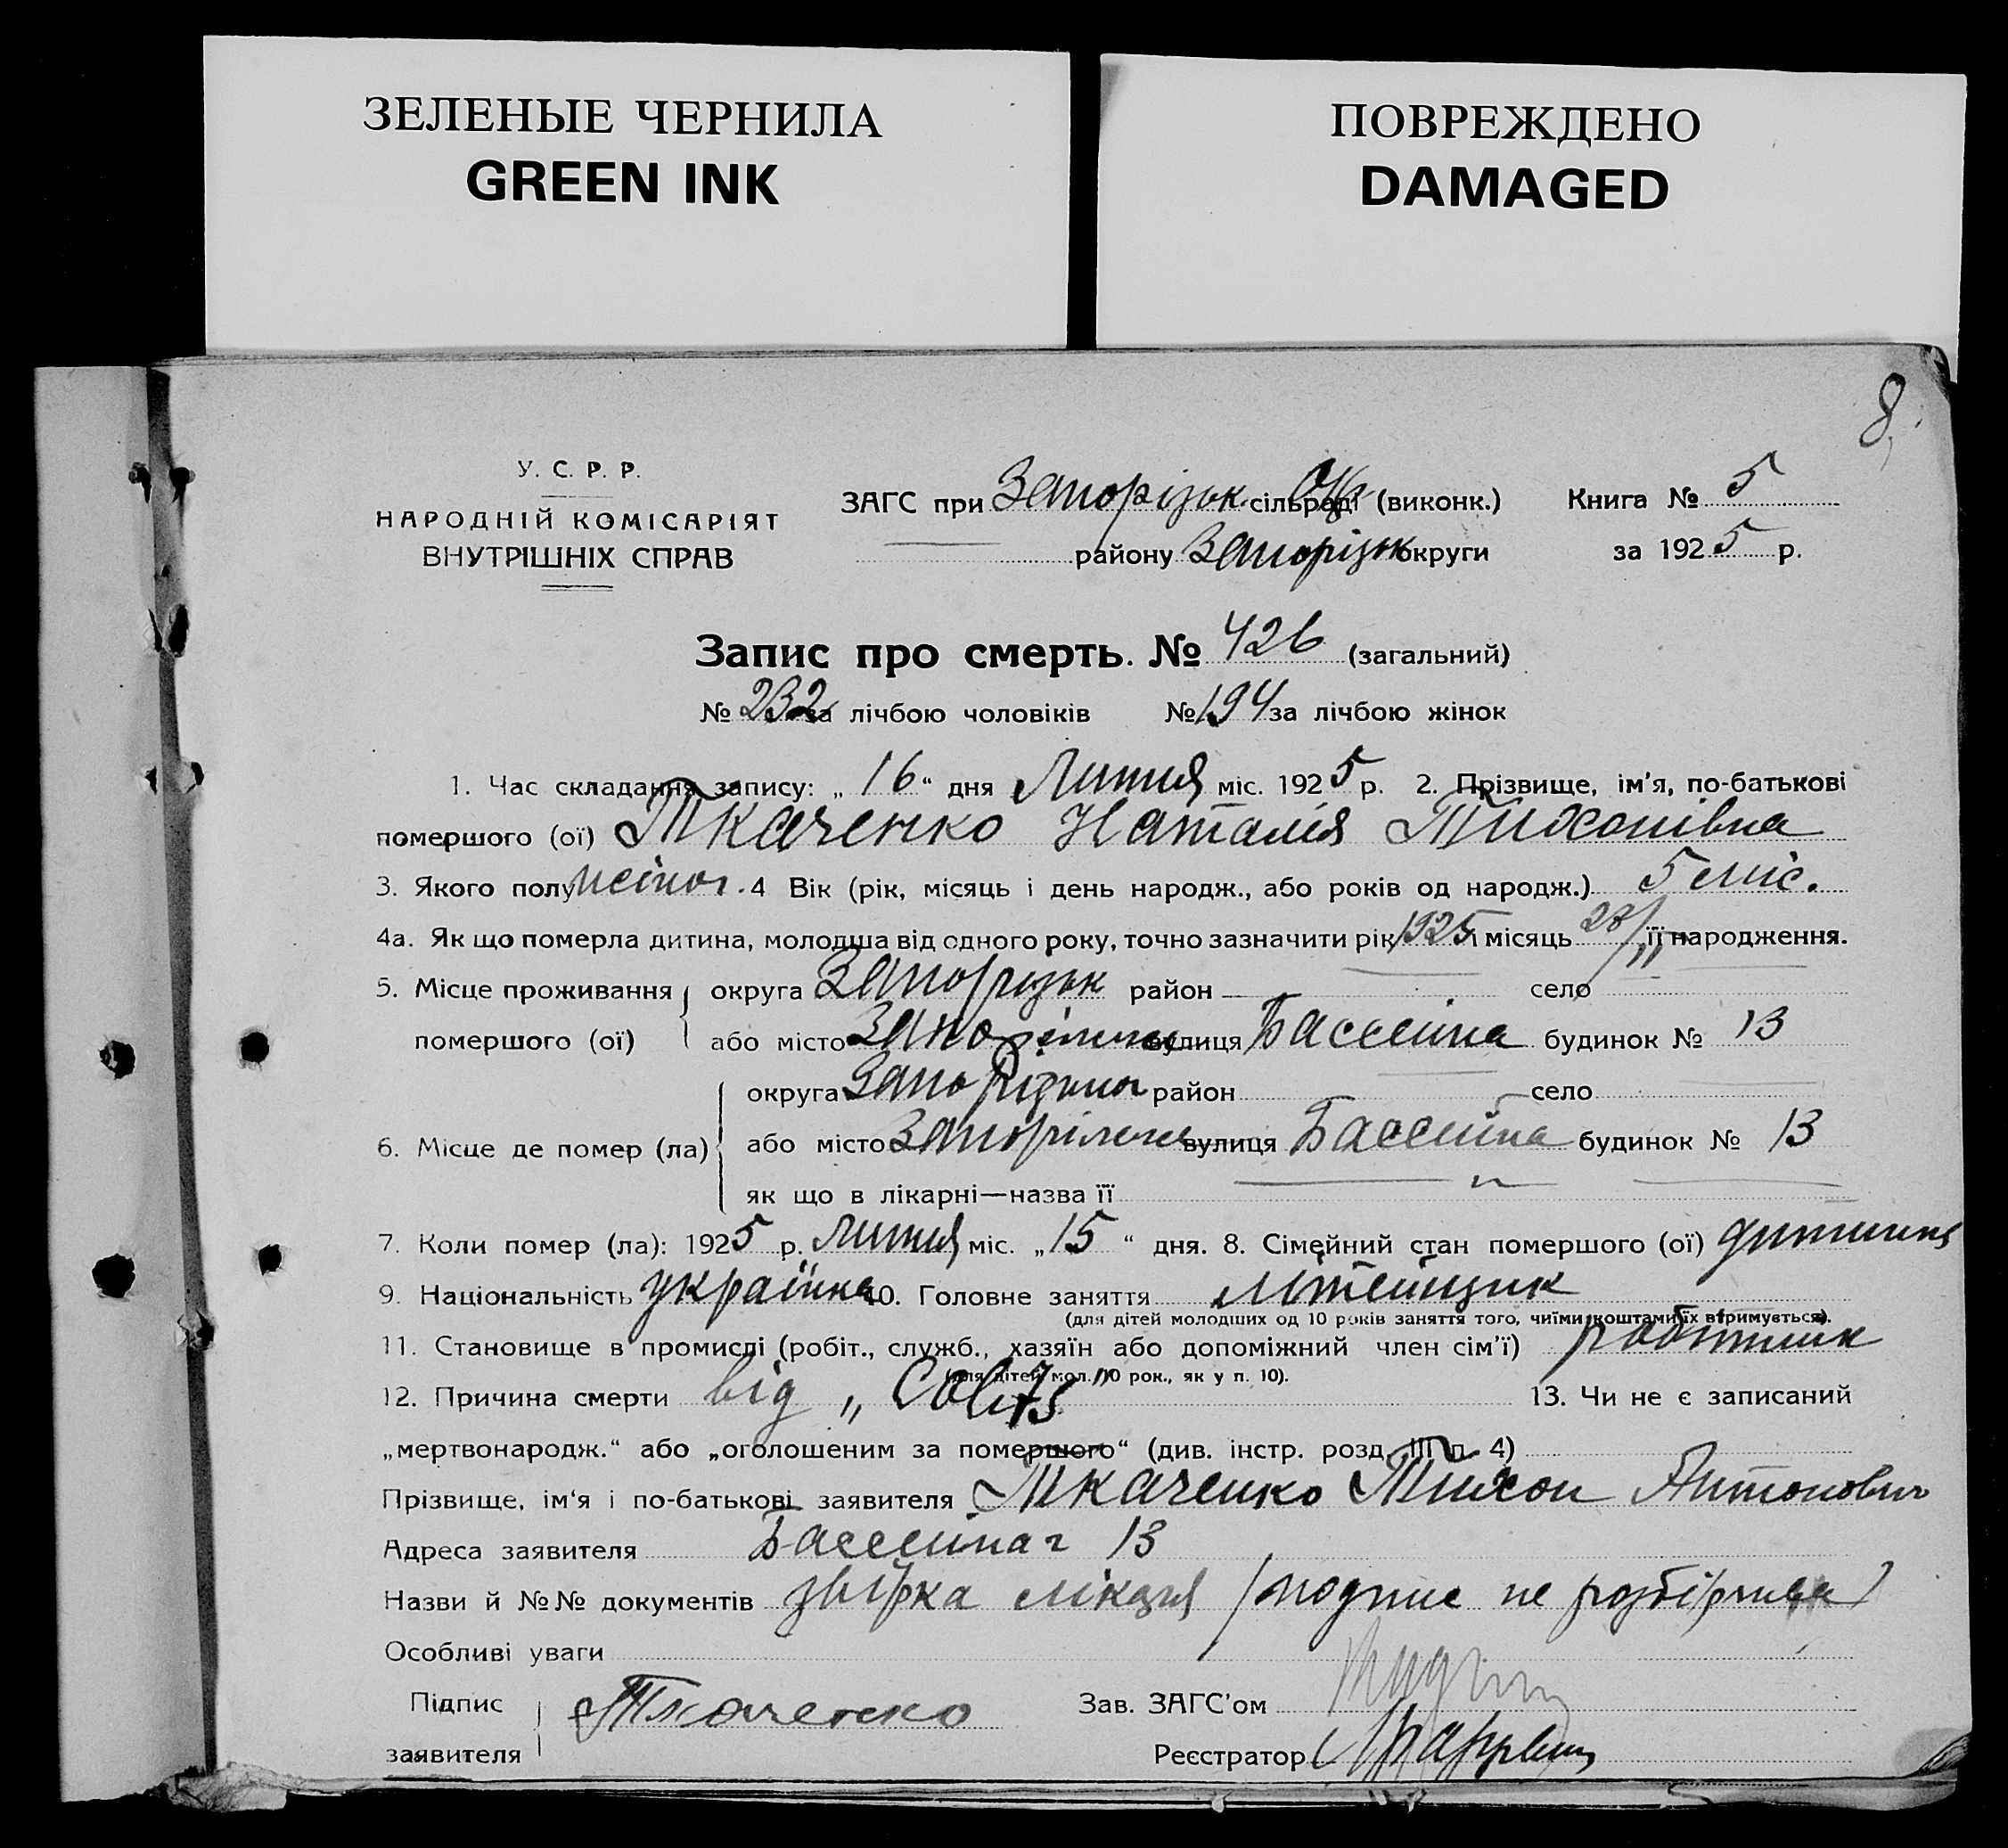 ЗЕЛЕНЫЕ ЧЕРНИЛА
GREEN INK
ПОВРЕЖДЕНО
DAMAGED
8
У. С. Р. Р.
НАРОДНІЙ КОМІСАРІЯТ
ВНУТРІШНІХ СПРАВ
ЗАГС при Запорізьк. сільраді (виконк.) Книга № 5
району Запорізьк округи за 1925 р.
Запис про смерть. № 426 (загальний)
№ 232 за лічбою чоловіків № 194 за лічбою жінок
1. Час складання запису: „16“ дня Липня міс. 1925 р. 2. Прізвище, ім'я, по-батькові
помершого (ої) Ткаченко Наталія Тихонівна
3. Якого полу жіноч. 4 Вік (рік, місяць і день народж., або років од народж.) 5 міс.
4а. Як що померла дитина, молодша від одного року, точно зазначити рік 1925 і місяць 28/II її народження.
5. Місце проживання округа Запорізьк район село
помершого (ої) або місто Запоріжжя вулиця Бассейна будинок № 13
округа Запорізька район село
6. Місце де помер (ла) або місто Запоріжжя вулиця Бассейна будинок № 13
як що в лікарні—назва її
7. Коли помер (ла): 1925 р. Липня міс. „15“ дня. 8. Сімейний стан помершого (ої) дитина
9. Національність українка 10. Головне заняття літейщик
(для дітей молодших од 10 років заняття того, чиїми коштами їх втримується).
11. Становище в промислі (робіт., служб., хазяїн або допоміжний член сім'ї) робітник
(для дітей мол. 10 рок., як у п. 10).
12. Причина смерти від „Colits“ 13. Чи не є записаний
„мертвонародж.“ або „оголошеним за помершого“ (див. інстр. розд. III п. 4)
Прізвище, ім'я і по-батькові заявителя Ткаченко Тихон Антонович
Адреса заявителя Бассейна 13
Назви й №№ документів звірка лікаря (подпис не розбірлива)
Особливі уваги
Підпис Ткаченко Зав. ЗАГС'ом
заявителя Реєстратор